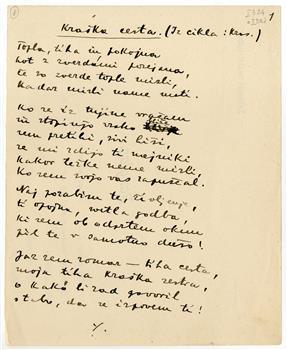 1
Kraška cesta. (Iz cikla: Kras.)
Topla, tiha in pokojna
kot z zverdami
te so zverde tople misli,
Kadar misli name
Ko se iz tujine vračam
in stopinjo vsako
sem pretihi, sivi hiši,
se mi zdijo ti mejniki,
kakor težke neme misli,
Ko sem svojo vas zapuščal.
Naj pozabim te, življenje,
ti opojna, svetla godba,
ki sem ob odprtem oknu
pil te v samotno dušo!
Jaz sem romar — tiha cesta,
moja tiha kraška sestra,
o kako bi rad govoril
s tabo, da se izpovem ti!
·/.